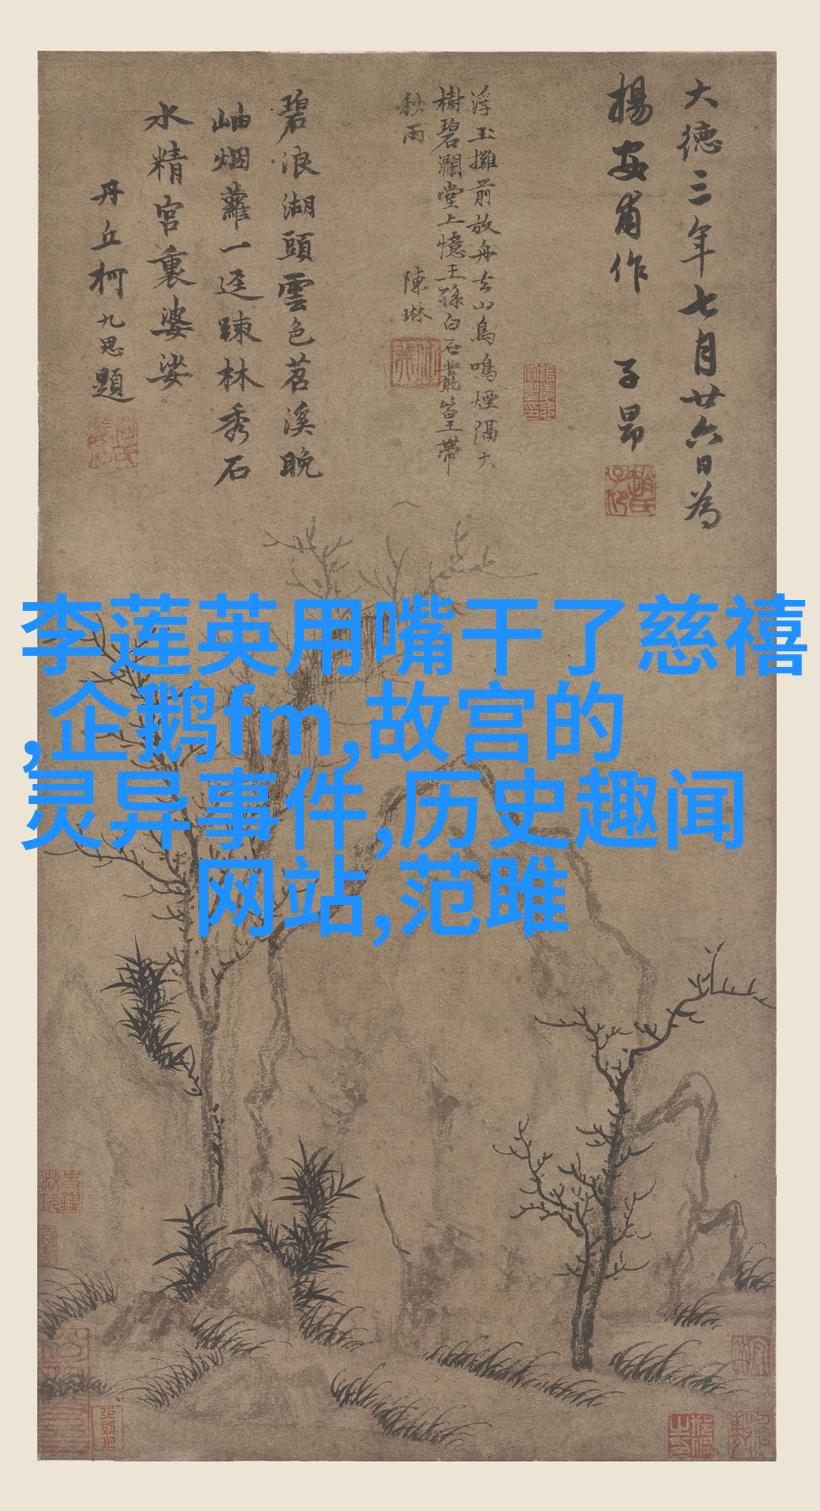 大德三年七月廿六日為
楊安甫作 子昂
浮玉灘前放舟去山鳥鳴煙隔大
樹碧瀾堂上憶王孫白石叢篁帶
秋雨 陳琳
碧浪湖頭雲色苕溪晚
岫烟蘿一逕踈林秀石
水精宮裏婆娑
丹丘柯九思題
李莲英用嘴干了慈禧
,企鹅fm,故宫的
灵异事件,历史趣闻
网站,范雎